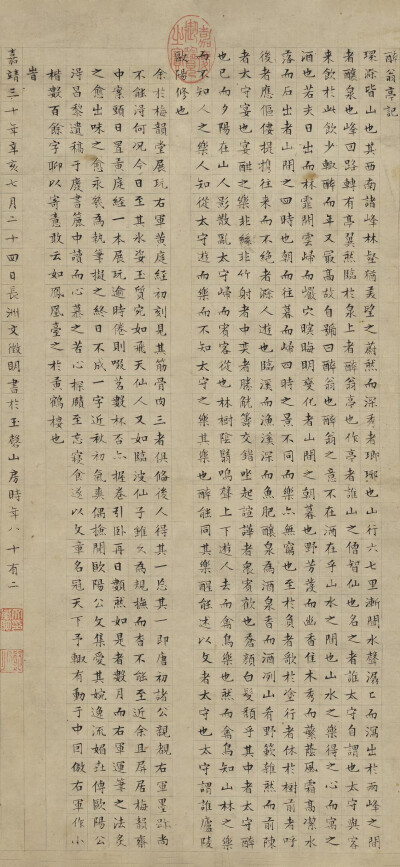 醉翁亭記
環滁皆山也其西南諸峰林壑猶美望之蔚然而深秀者瑯琊也山行六七里漸聞水聲潺潺而瀉出於兩峰之間
者釀泉也峰回路轉有亭翼然臨於泉上者醉翁亭也作亭者誰山之僧智仙也名之者誰太守自謂也太守與客
來飲於此飲少輒醉而年又最高故自號曰醉翁也醉翁之意不在酒在乎山水之間也山水之樂得之心而寓之
酒也若夫日出而林霏開雲歸而巖穴暝晦明變化者山間之朝暮也野芳發而幽香佳木秀而繁蔭風霜高潔水
落而石出者山間之四時也朝而往暮而歸四時之景不同而樂亦無窮也至於負者歌於塗行者休於樹前者呼
後者應傴僂提攜往來而不絕者滁人遊也臨溪而漁溪深而魚肥釀泉為酒泉香而酒冽山肴野蔌雜然而前陳
者太守宴也宴酣之樂非絲非竹射者中奕者勝觥籌交錯坐起諠譁者衆賓歡也蒼顏白髮頹乎其中者太守醉
也已而夕陽在山人影散亂太守歸而賓客從也林樹陰翳鳴聲上下遊人去而禽鳥樂也然而禽鳥知山林之樂
而不知人之樂人知從太守遊而樂而不知太守之樂其樂也醉能同其樂醒能述以文者太守也太守謂誰廬陵
歐陽修也
余於梅韻堂展玩右軍黃庭經初刻見其筋骨肉三者俱備後人得其一忘其一即唐初諸公親覩右軍墨跡尚
不能得何況今日至其丰姿玉質宛如飛天仙人又如臨波仙子雖久為規撫而杳不能至近余且屏居梅韻齋
中案頭日置黃庭經一本展玩逾時倦則啜茗數杯否亦握卷引臥再日數然如是者數月而右軍運筆之法炙
之愈出味之愈永茲為執筆擬之終日不成一字近秋初氣爽偶撿閱歐陽公文集愛其婉逸流媚並傳歐陽公
得昌黎遺稿於廢書簏中讀而心慕之苦心探賾至忘寢食遂以文章名冠天下予輒有動于中因倣右軍作小
楷數百餘字聊以寄意敢云如鳳凰臺之於黃鶴樓也
旹
嘉靖三十年辛亥七月二十四日長洲文徵明書於玉磬山房時年八十有二